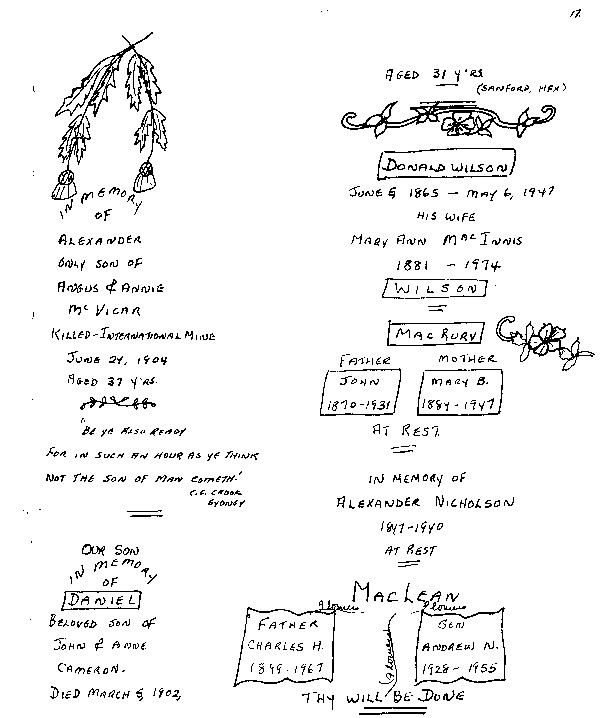 17.
IN MEMORY
OF
ALEXANDER
ONLY SON OF
ANGUS & ANNIE
MCVICAR
KILLED - INTERNATIONAL MINE
JUNE 24, 1904
AGED 37 Y'RS.
"BE YE ALSO READY
FOR IN SUCH AN HOUR AS YE THINK
NOT THE SON OF MAN COMETH."
C.E. CROOK
SYDNEY
OUR SON
IN MEMORY
OF
DANIEL
BELOVED SON OF
JOHN & ANNE
CAMERON.
DIED MARCH 5, 1902,
AGED 31 Y'RS.
(SANFORD, HFX)
DONALD WILSON
JUNE 5, 1865 - MAY 6, 1947
HIS WIFE
MARY ANN MACINNIS
1881 - 1974
WILSON
MACRURY
FATHER MOTHER
JOHN MARY B.
1870-1931 1884-1947
AT REST.
IN MEMORY OF
ALEXANDER NICHOLSON
1847-1940
AT REST
MACLEAN
flowers flowers
FATHER SON
CHARLES H. flowers ANDREW N.
1899-1967 1928-1955
THY WILL BE DONE